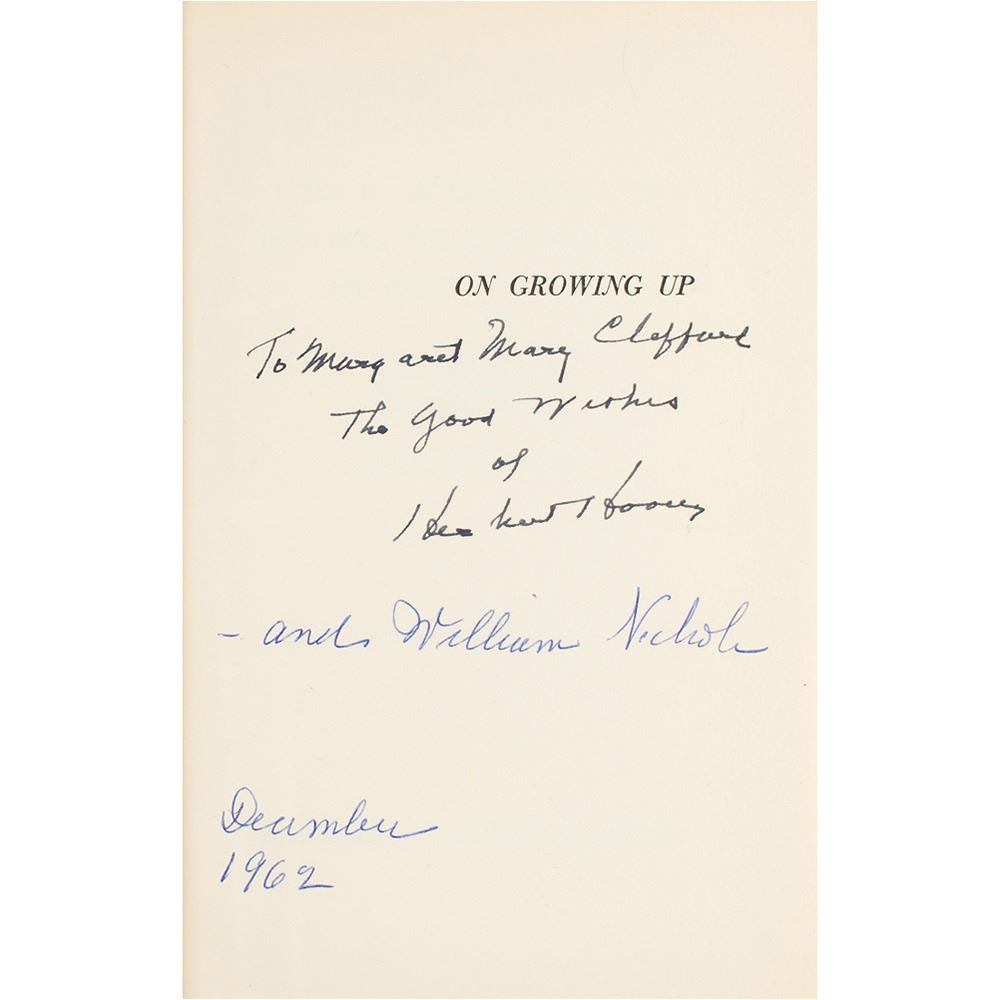 ON GROWING UP
To Margaret Mary Clifford
The Good Wishes
of
Herbert Hoover
- and William Nichols
December
1962